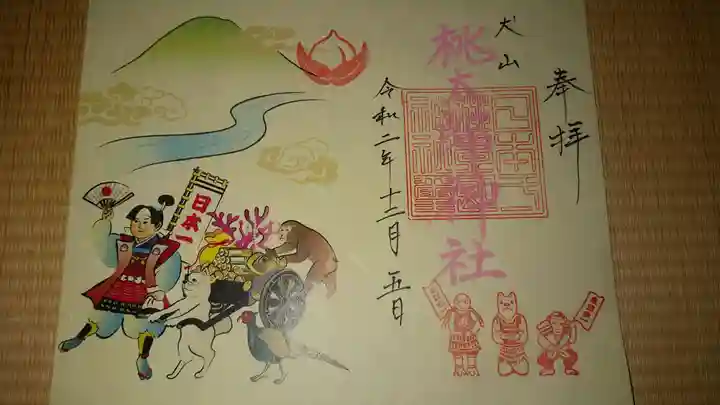 奉拝
犬山
桃太郎神社
令和二年十二月五日
日本一